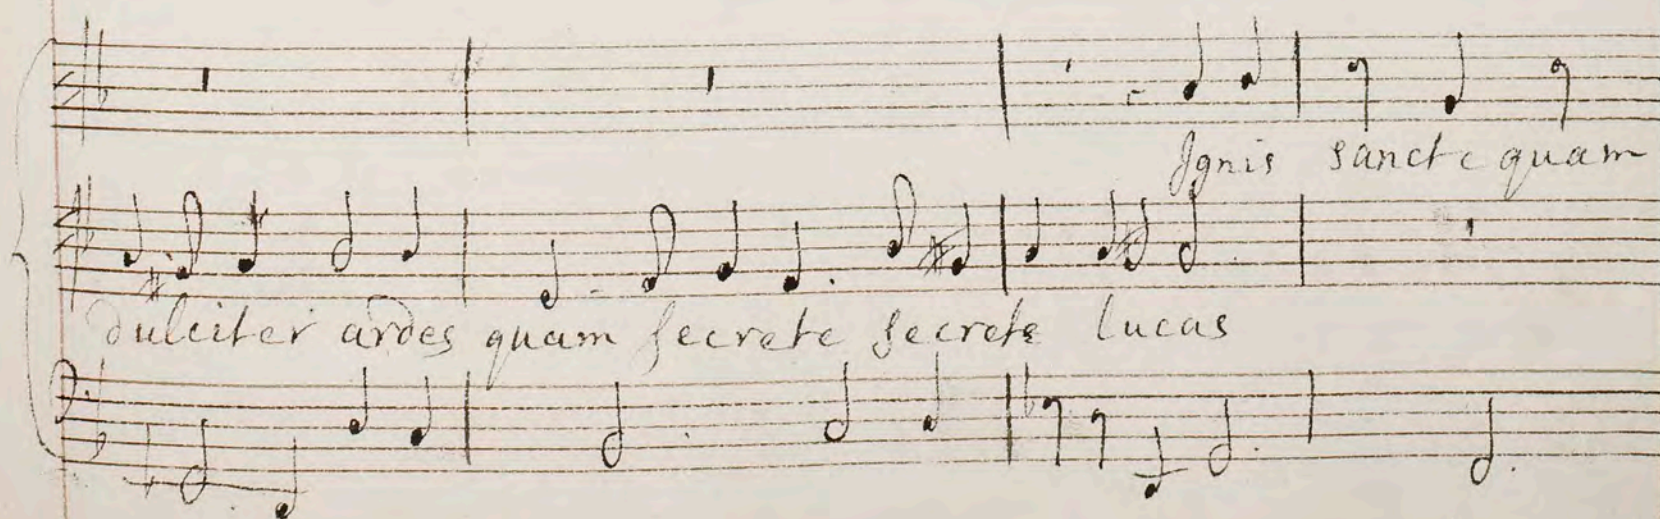 Ignis sancte quam
dulciter ardes quam secrete secrete lucas